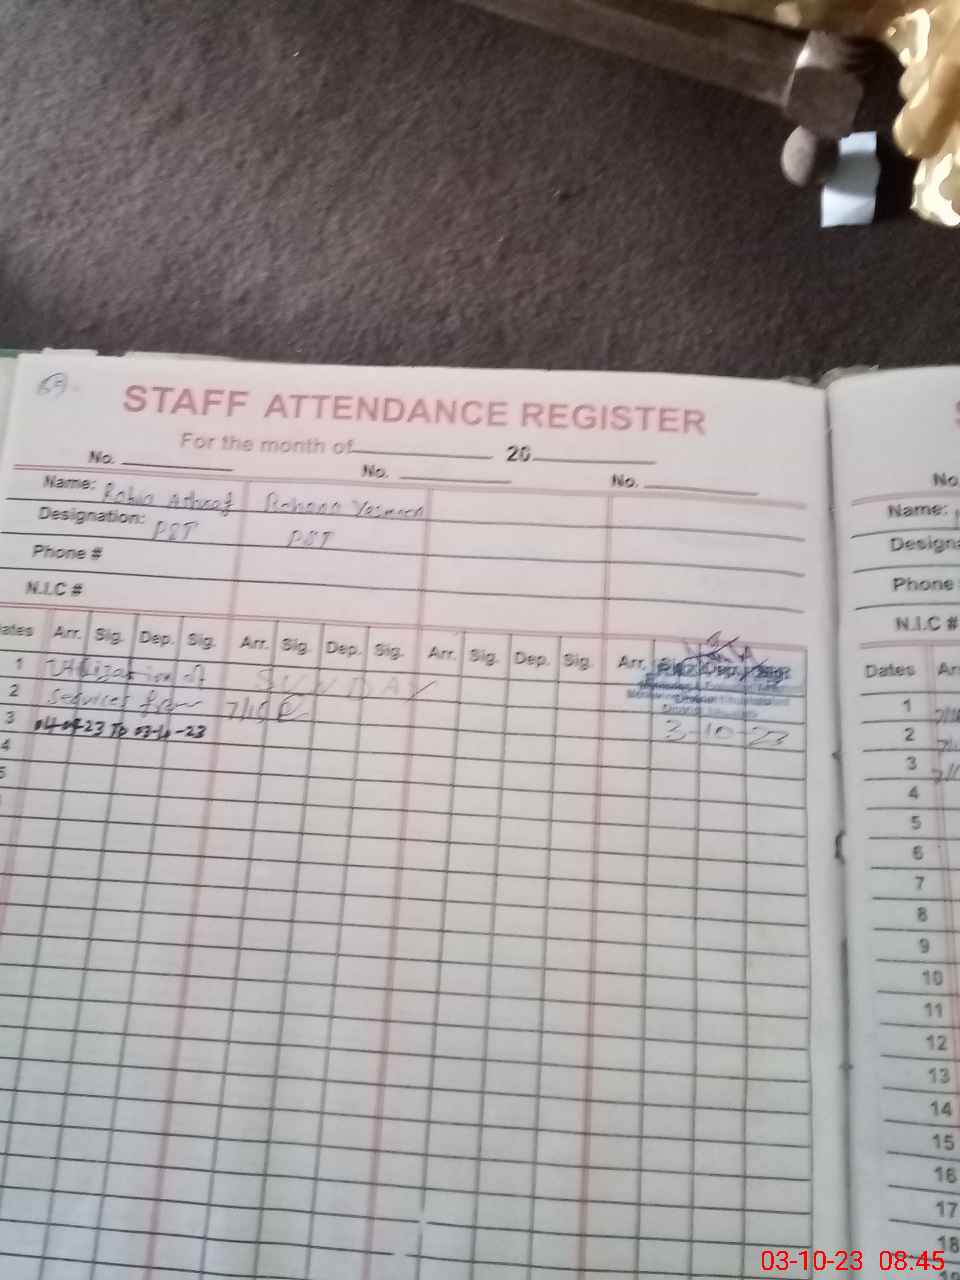 69
STAFF ATTENDANCE REGISTER
For the month of 20
No. No. No.
Name: Rabia Ashraf Rehana Yasmeen
Designation: PST PST
Phone #
N.I.C #
Dates Arr. Sig. Dep. Sig. Arr. Sig. Dep. Sig. Arr. Sig. Dep. Sig. Arr. Sig. Dep. Sig.
1 Utilization of SUNDAY
2 Services from 7/15
3 04-09-23 To 03-10-23 3-10-23
4
5
No.
Name:
Phone
N.I.C #
Dates
1
2
3
4
5
6
7
8
9
10
11
12
13
14
15
16
17
18
03-10-23 08:45